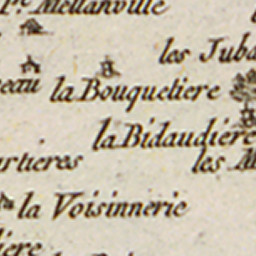 P.^e Mellanville
les Juba
eau la Bouquetiere
la Bidaudiére
rtieres les M
la Voisinnerie
iere